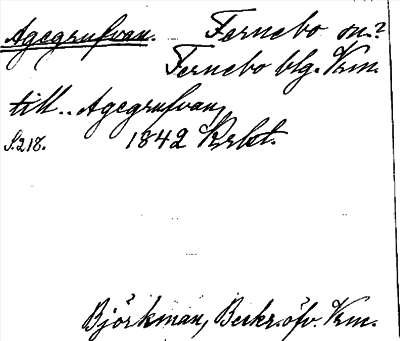 Agegrufvan. Fernebo sn.?
Fernebo blg. Vrm.
till.. Agegrufvan,
S.218. 1842 Krbst.
Björkman, Beskr. öfv. Vrm.